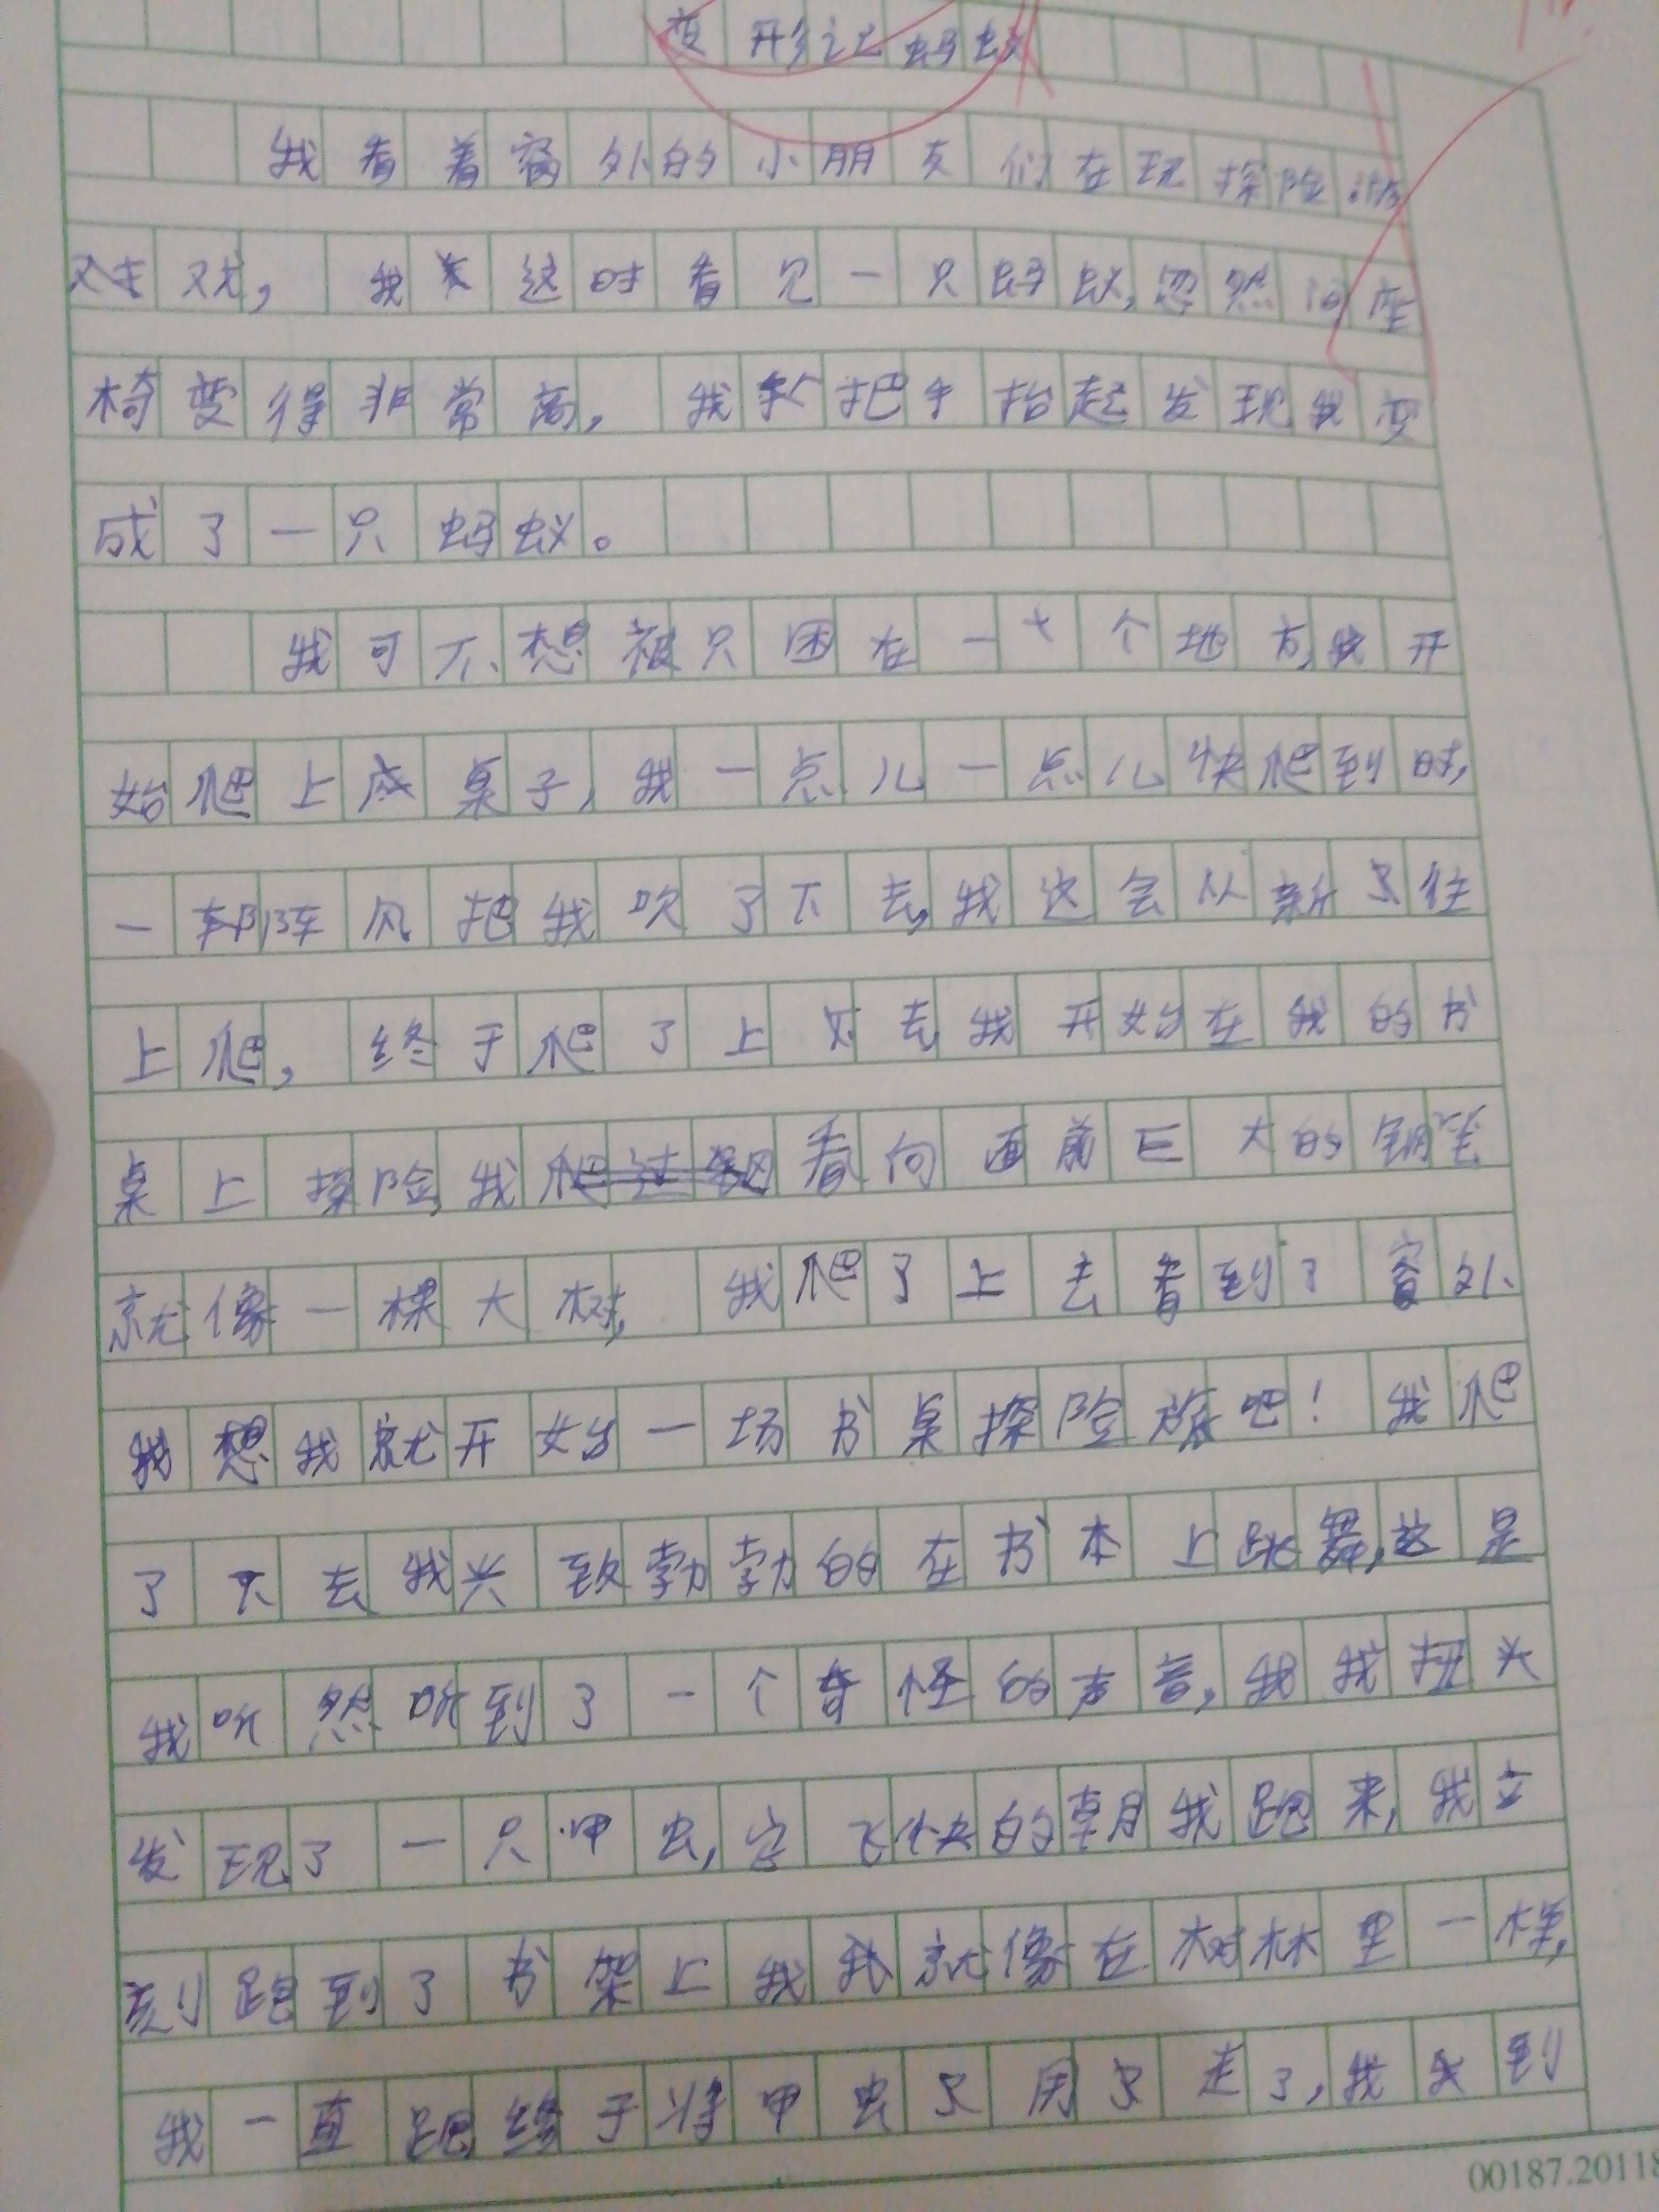 变形记蚂蚁
我看着窗外的小朋友们在玩探险游
戏,我这时看见一只蚂蚁,忽然间座
椅变得非常高,我把手抬起发现我变
成了一只蚂蚁。
我可不想被只困在一个地方,我开
始爬上桌子,我一点儿一点儿快爬到时,
一阵风把我吹了下去,我这会从新又往
上爬,终于爬了上去,我开始在我的书
桌上探险,我看向面前巨大的钢笔
就像一棵大树,我爬了上去看到了窗外
我想我就开始一场书桌探险旅吧!我爬
了下去我兴致勃勃的在书本上跳舞,这是
我听然听到了一个奇怪的声音,我我扭头
发现了一只甲虫,它飞快的朝我跑来,我立
刻跑到了书架上我我就像在树林里一样,
我一直跑终于将甲虫走了,我到
00187.20118